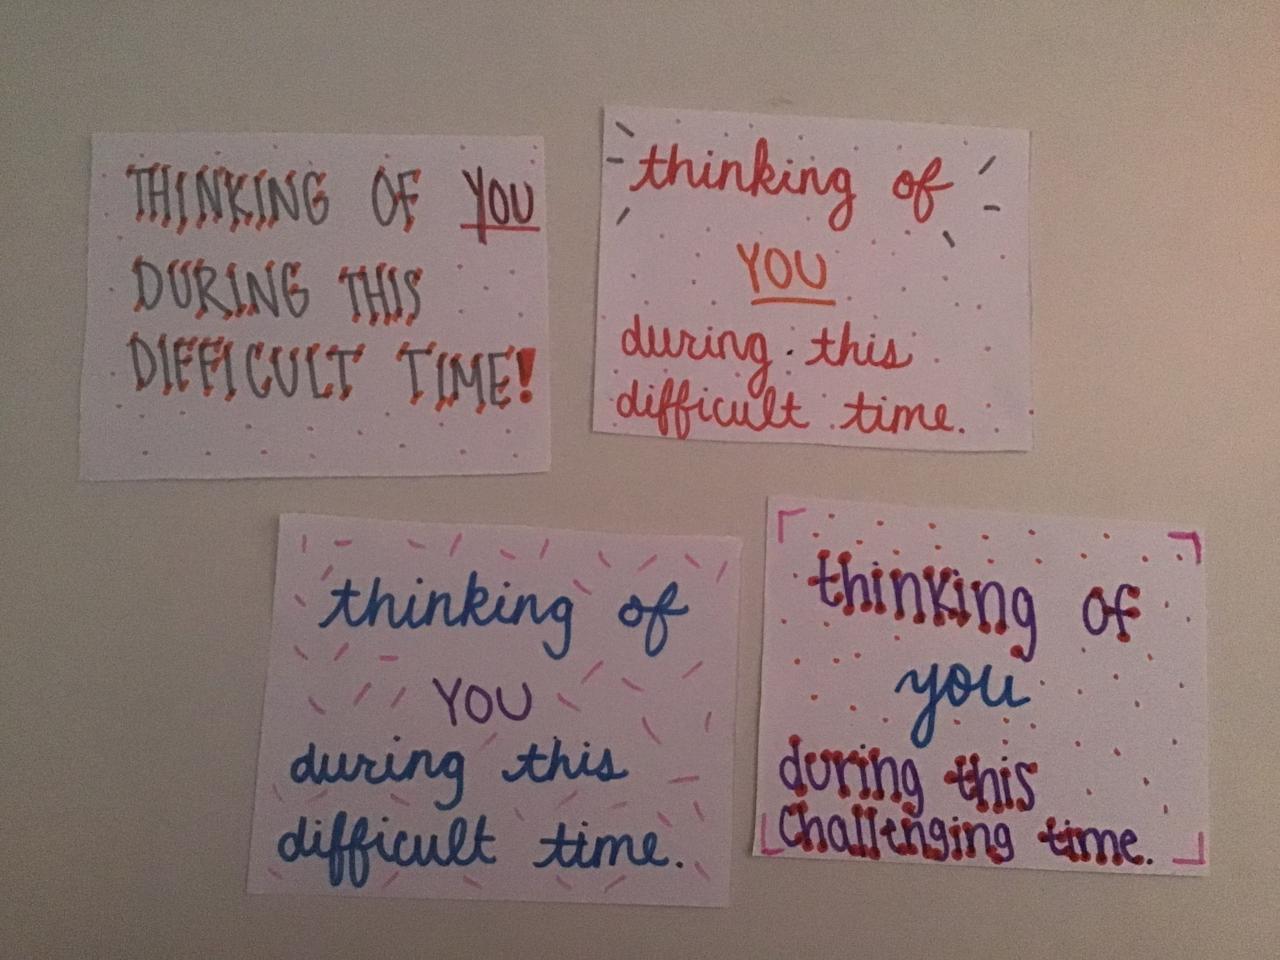 THINKING OF YOU
DURING THIS
DIFFICULT TIME!
thinking of
YOU
during this
difficult time.
thinking of
YOU
during this
difficult time.
thinking of
you
during this
Challenging time.